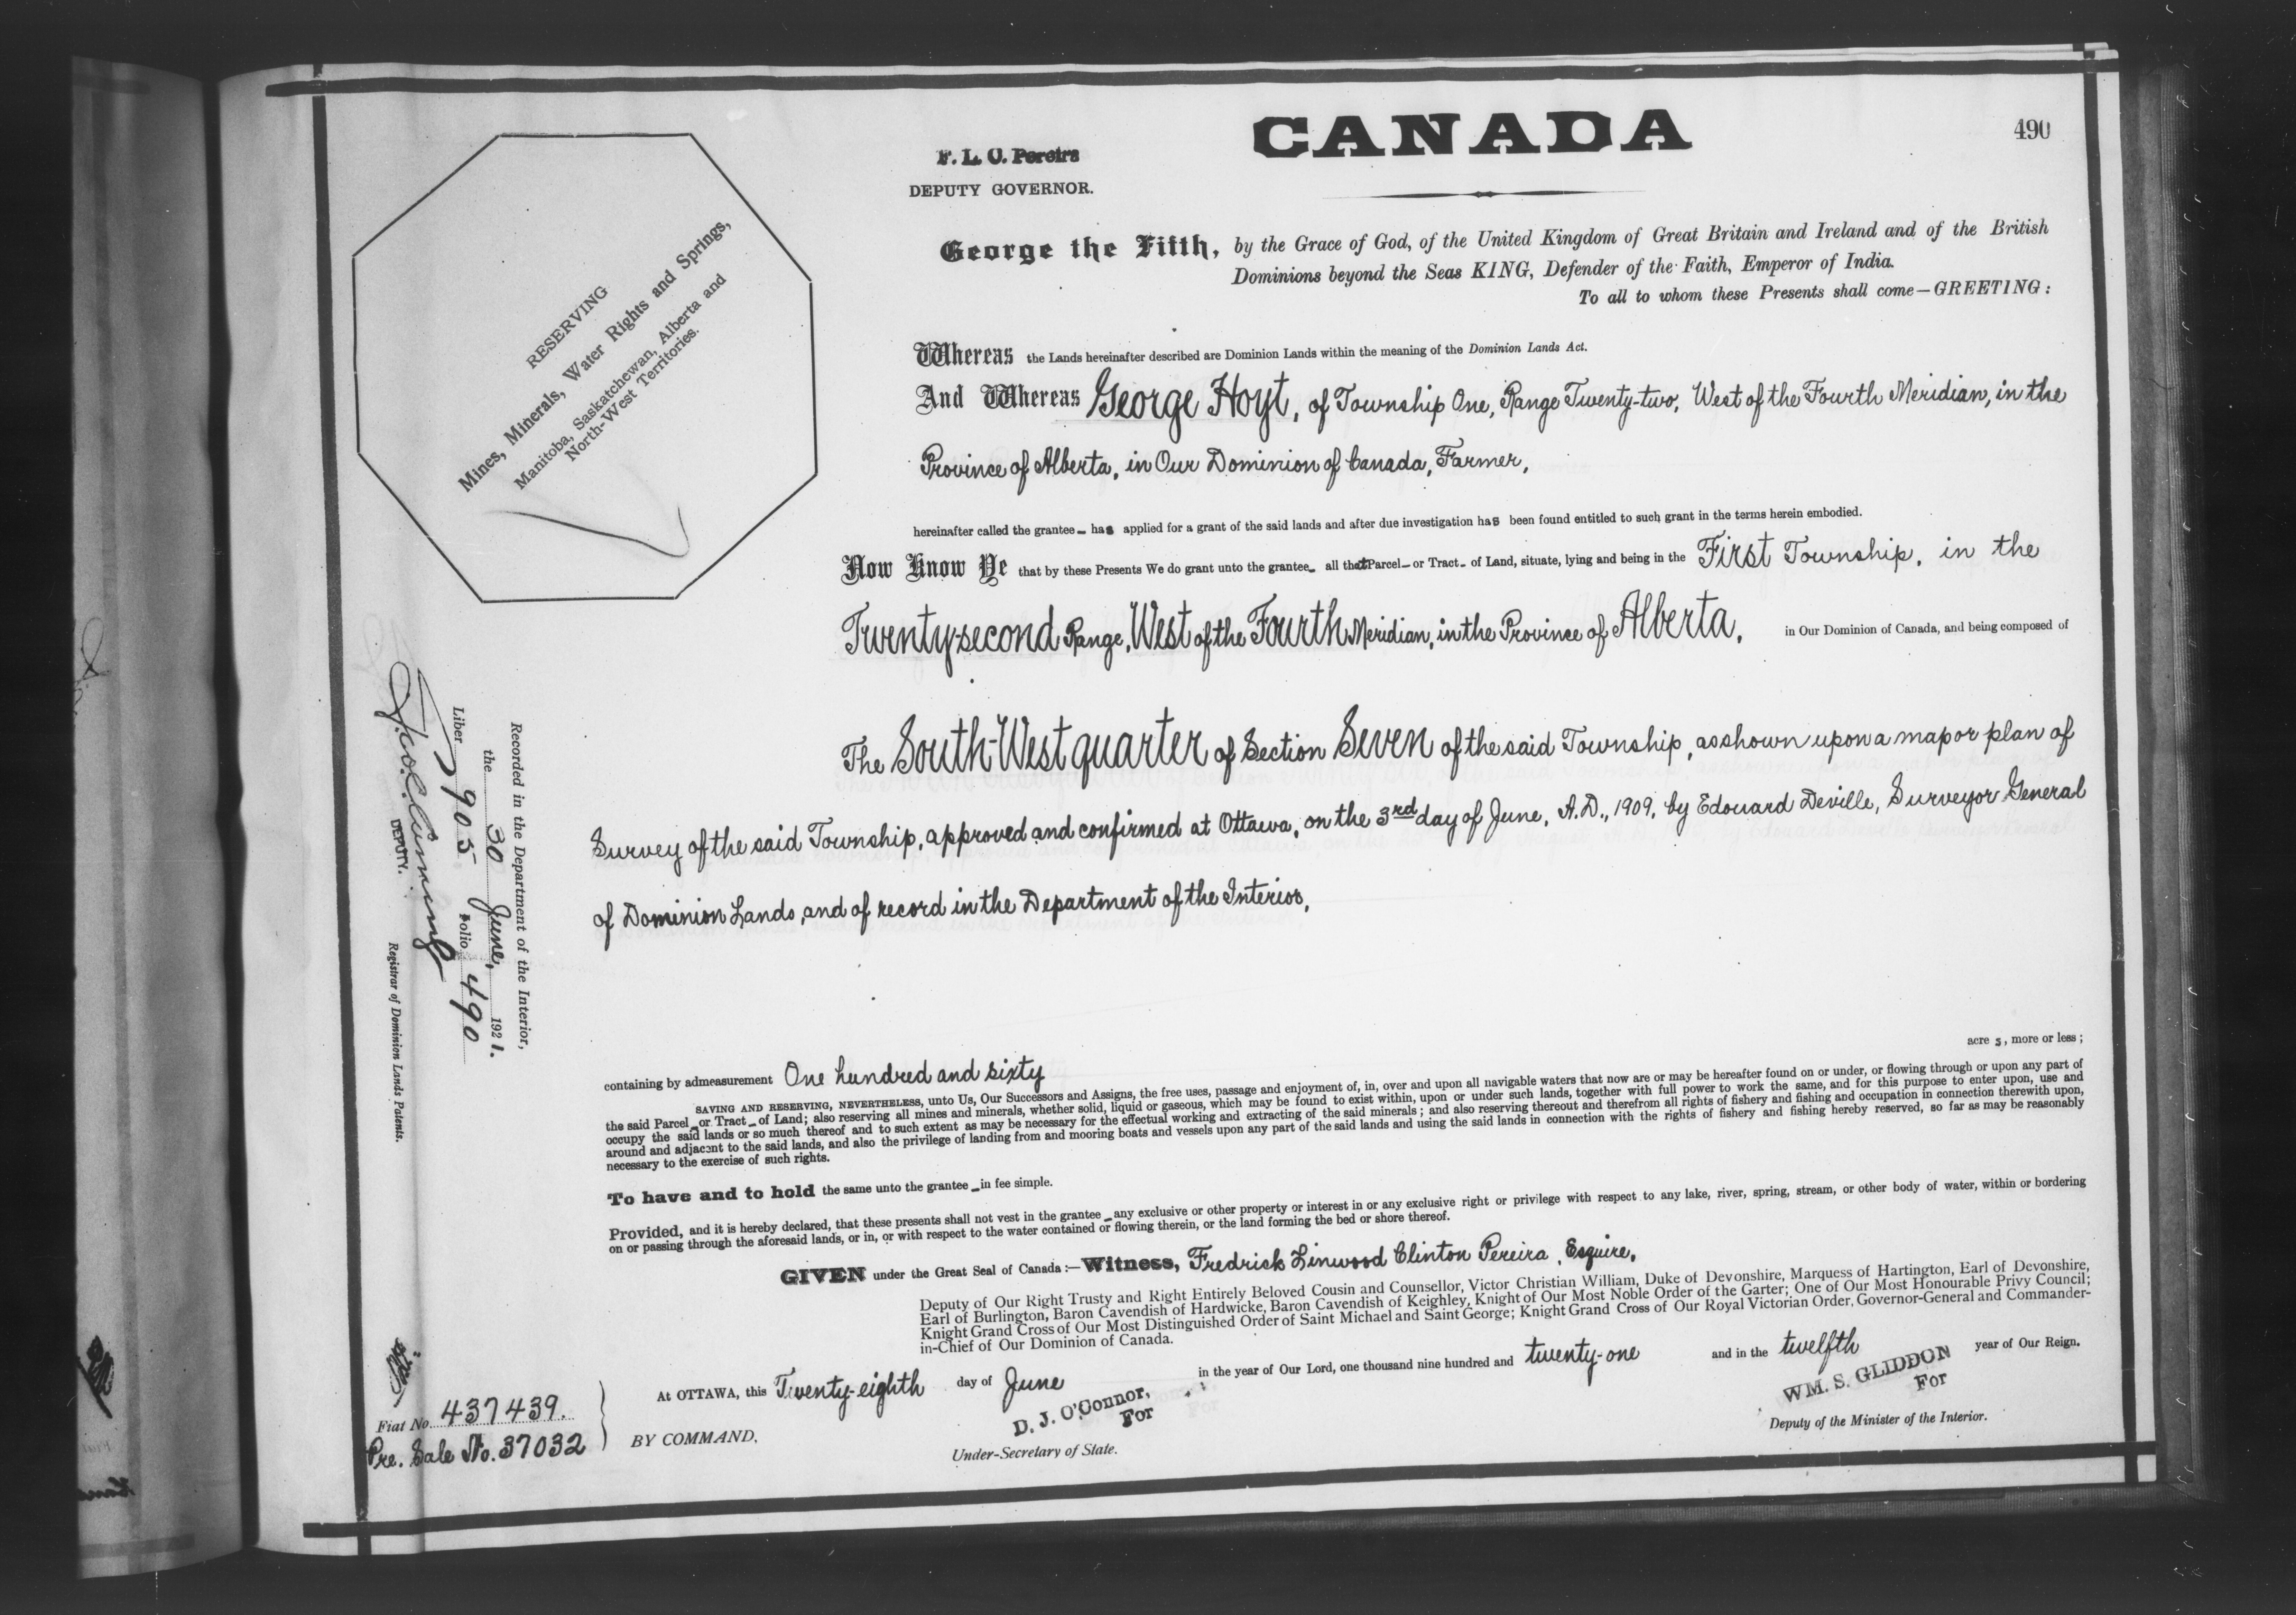 CANADA
490
F. L. C. Pereira
DEPUTY GOVERNOR.
George the Fifth, by the Grace of God, of the United Kingdom of Great Britain and Ireland and of the British
Dominions beyond the Seas KING, Defender of the Faith, Emperor of India.
To all to whom these Presents shall come—GREETING:
RESERVING
Mines, Minerals, Water Rights and Springs,
Manitoba, Saskatchewan, Alberta and
North-West Territories.
Whereas the Lands hereinafter described are Dominion Lands within the meaning of the Dominion Lands Act.
And Whereas George Hoyt, of Township One, Range Twenty-two, West of the Fourth Meridian, in the
Province of Alberta, in Our Dominion of Canada, Farmer,
hereinafter called the grantee_ has applied for a grant of the said lands and after due investigation has been found entitled to such grant in the terms herein embodied.
Now Know Ye that by these Presents We do grant unto the grantee_ all that Parcel_ or Tract_ of Land, situate, lying and being in the First Township, in the
Twenty-second Range, West of the Fourth Meridian, in the Province of Alberta, in Our Dominion of Canada, and being composed of
The South-West quarter of Section Seven of the said Township, as shown upon a map or plan of
Survey of the said Township, approved and confirmed at Ottawa, on the 3rd day of June, A.D., 1909, by Edouard Deville, Surveyor General
of Dominion Lands, and of record in the Department of the Interior,
acres, more or less;
containing by admeasurement One hundred and sixty
SAVING AND RESERVING, NEVERTHELESS, unto Us, Our Successors and Assigns, the free uses, passage and enjoyment of, in, over and upon all navigable waters that now are or may be hereafter found on or under, or flowing through or upon any part of
the said Parcel_ or Tract_ of Land; also reserving all mines and minerals, whether solid, liquid or gaseous, which may be found to exist within, upon or under such lands, together with full power to work the same, and for this purpose to enter upon, use and
occupy the said lands or so much thereof and to such extent as may be necessary for the effectual working and extracting of the said minerals; and also reserving thereout and therefrom all rights of fishery and fishing and occupation in connection therewith upon,
around and adjacent to the said lands, and also the privilege of landing from and mooring boats and vessels upon any part of the said lands and using the said lands in connection with the rights of fishery and fishing hereby reserved, so far as may be reasonably
necessary to the exercise of such rights.
To have and to hold the same unto the grantee_ in fee simple.
Provided, and it is hereby declared, that these presents shall not vest in the grantee_ any exclusive or other property or interest in or any exclusive right or privilege with respect to any lake, river, spring, stream, or other body of water, within or bordering
on or passing through the aforesaid lands, or in, or with respect to the water contained or flowing therein, or the land forming the bed or shore thereof.
GIVEN under the Great Seal of Canada:—Witness, Fredrick Linwood Clinton Pereira, Esquire,
Deputy of Our Right Trusty and Right Entirely Beloved Cousin and Counsellor, Victor Christian William, Duke of Devonshire, Marquess of Hartington, Earl of Devonshire,
Earl of Burlington, Baron Cavendish of Hardwicke, Baron Cavendish of Keighley, Knight of Our Most Noble Order of the Garter; One of Our Most Honourable Privy Council;
Knight Grand Cross of Our Most Distinguished Order of Saint Michael and Saint George; Knight Grand Cross of Our Royal Victorian Order, Governor-General and Commander-
in-Chief of Our Dominion of Canada.
At OTTAWA, this Twenty-eighth day of June in the year of Our Lord, one thousand nine hundred and twenty-one and in the twelfth year of Our Reign.
BY COMMAND,
D. J. O'Connor,
For
Under-Secretary of State.
WM. S. GLIDDON
For
Deputy of the Minister of the Interior.
Recorded in the Department of the Interior,
the 30 June, 1921.
Liber 905 Folio 490
DEPUTY. Registrar of Dominion Lands Patents.
Fiat No. 437439.
Pre. Sale No. 37032